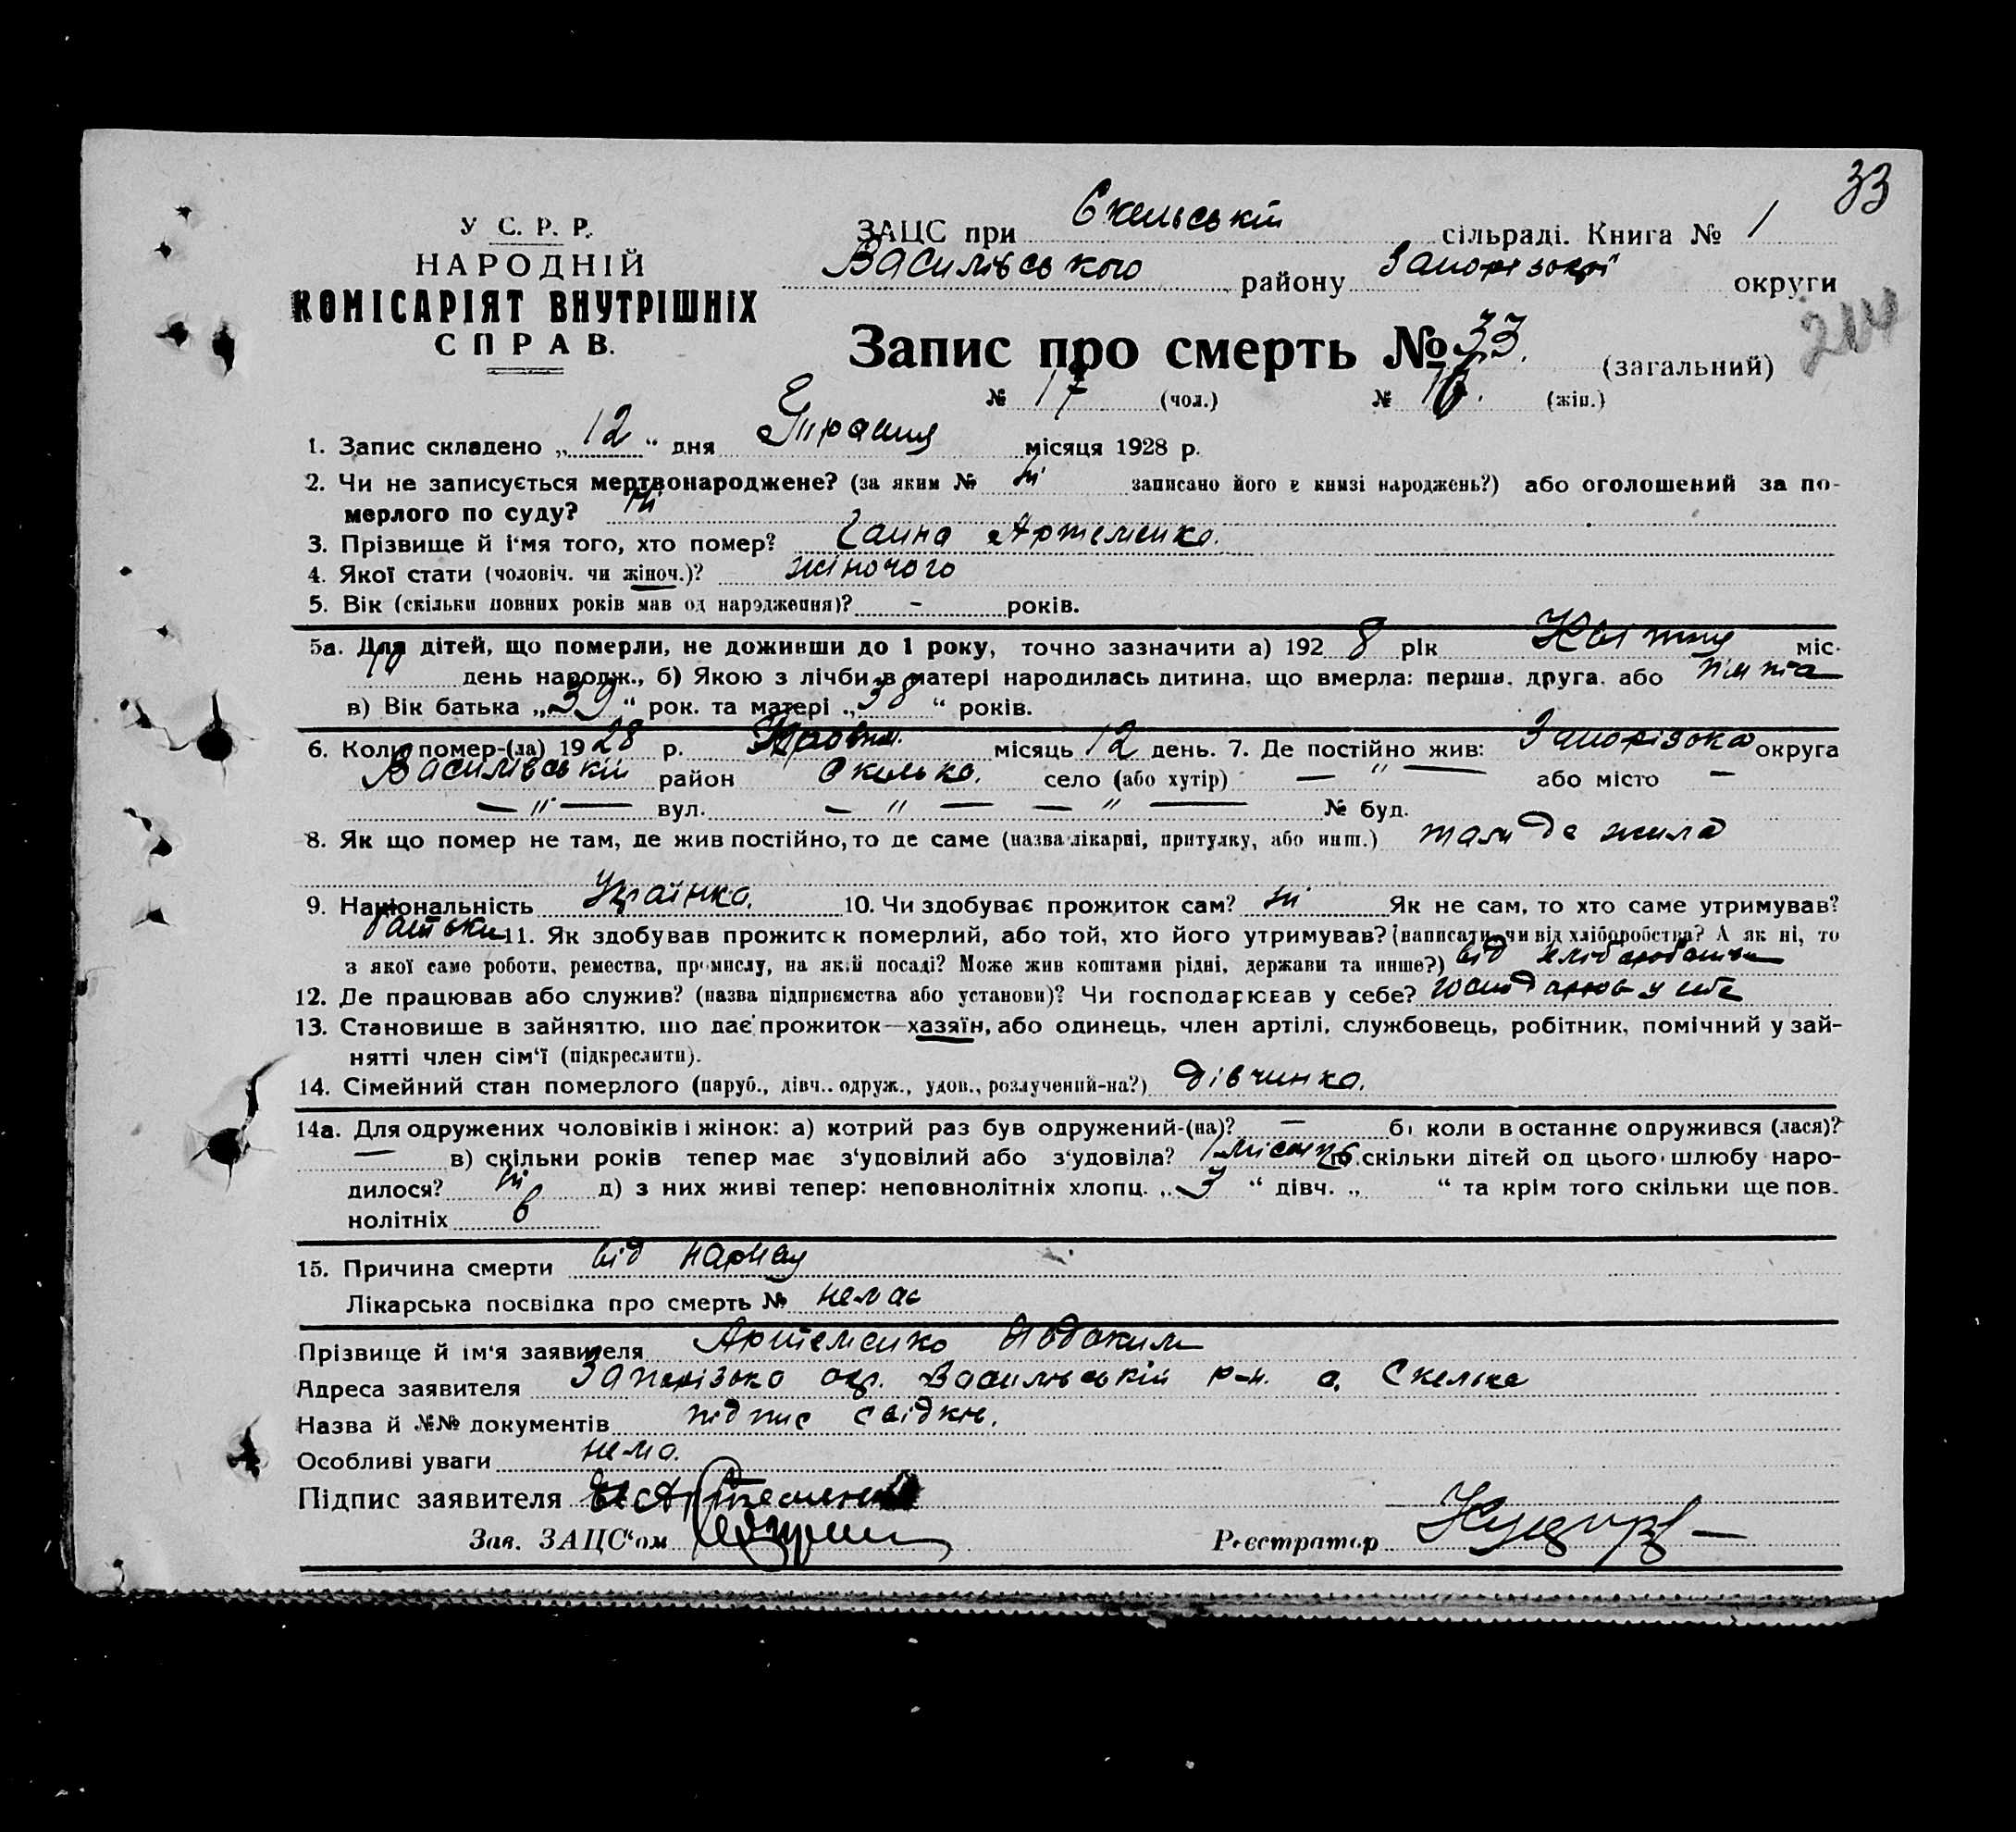 33
У С. Р. Р.
НАРОДНІЙ
КОМІСАРІЯТ ВНУТРІШНІХ
СПРАВ.
ЗАЦС при Скельській сільраді. Книга № 1
Василівського району Запорізької округи
Запис про смерть № 33. (загальний)
№ 17 (чол.) № 16. (жін.)
1. Запис складено „12“ дня місяця 1928 р.
2. Чи не записується мертвонароджене? (за яким № ні записано його в книзі народжень?) або оголошений за по-
мерлого по суду? ні
3. Прізвище й і'мя того, хто помер? Ганна Артеменко.
4. Якої стати (чоловіч. чи жіноч.)? жіночого
5. Вік (скільки повних років мав од народження)? - років.
5а. Для дітей, що померли, не доживши до 1 року, точно зазначити а) 1928 рік Квітня міс.
день народж., б) Якою з лічби в матері народилась дитина, що вмерла: перша, друга, або п'ята
в) Вік батька „39“ рок. та матері „38“ років.
6. Коли помер-(ла) 1928 р. місяць 12 день. 7. Де постійно жив: Запорізька округа
Василівській район Скелька. село (або хутір) — " — або місто —
— " — вул. — " — — " — № буд.
8. Як що помер не там, де жив постійно, то де саме (назва лікарні, притулку, або инш.) там де жила
9. Національність Українка. 10. Чи здобуває прожиток сам? ні Як не сам, то хто саме утримував?
батьки 11. Як здобував прожиток померлий, або той, хто його утримував? (написати, чи від хліборобства? А як ні, то
з якої саме роботи, ремества, промислу, на якій посаді? Може жив коштами рідні, держави та инше?) від хліборобства
12. Де працював або служив? (назва підприємства або установи)? Чи господарював у себе? господарюв у себе
13. Становище в зайняттю, що дає прожиток—хазяїн, або одинець, член артілі, службовець, робітник, помічний у зай-
нятті член сім'ї (підкреслити).
14. Сімейний стан померлого (паруб., дівч.. одруж., удов., розлучений-на?) дівчинка.
14а. Для одружених чоловіків і жінок: а) котрий раз був одружений-(на)? — б) коли в останнє одружився (лася)?
— в) скільки років тепер має з'уповілий або з'удовіла? 1 місяць г) скільки дітей од цього шлюбу наро-
дилося? ні д) з них живі тепер: неповнолітніх хлопц. „3“ дівч. „ “ та крім того скільки ще пов.
нолітніх
15. Причина смерти від
Лікарська посвідка про смерть № немає
Прізвище й ім'я заявителя Артеменко Явдоким
Адреса заявителя Запорізька окр. Василівській р-н. с. Скелька
Назва й №№ документів підпис свідків.
Особливі уваги нема.
Підпис заявителя
Зав. ЗАЦС'ом Реєстратор